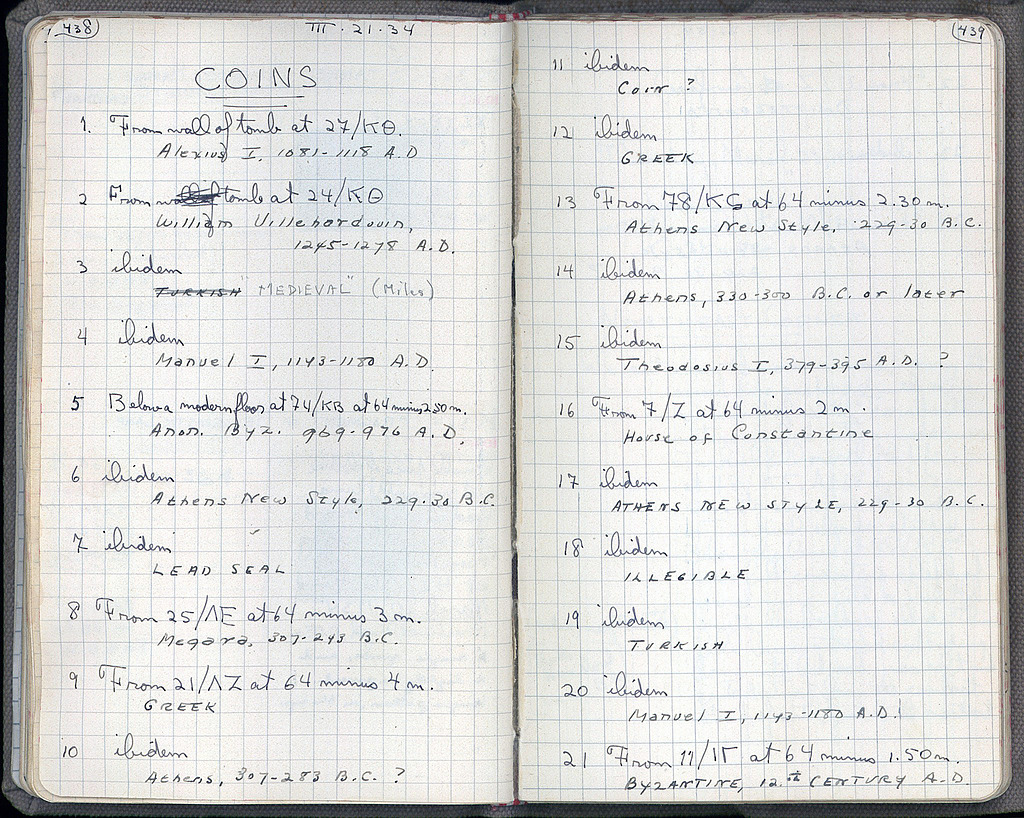 438
III . 21 . 34
COINS
1. From wall of tomb at 27/ΚΘ.
Alexius I, 1081-1118 A.D
2 From wall of tomb at 24/ΚΘ
William Villehardouin,
1245-1278 A.D.
3 ibidem
TURKISH "MEDIEVAL" (Miles)
4 ibidem
Manuel I, 1143-1180 A.D.
5 Below a modern floor at 74/ΚΒ at 64 minus 2.50 m.
Anon. Byz. 969-976 A.D.
6 ibidem
Athens New Style, 229-30 B.C.
7 ibidem
LEAD SEAL
8 From 25/ΛΕ at 64 minus 3 m.
Megara, 307-243 B.C.
9 From 21/ΛΖ at 64 minus 4 m.
GREEK
10 ibidem
Athens, 307-283 B.C. ?
439
11 ibidem
Coin ?
12 ibidem
GREEK
13 From 78/ΚϚ at 64 minus 2.30 m.
Athens New Style, 229-30 B.C.
14 ibidem
Athens, 330-300 B.C. or later
15 ibidem
Theodosius I, 379-395 A.D. ?
16 From 7/Ζ at 64 minus 2 m.
House of Constantine
17 ibidem
ATHENS NEW STYLE, 229-30 B.C.
18 ibidem
ILLEGIBLE
19 ibidem
TURKISH
20 ibidem
Manuel I, 1143-1180 A.D.
21 From 11/ΙΓ at 64 minus 1.50 m.
BYZANTINE, 12th CENTURY A.D.